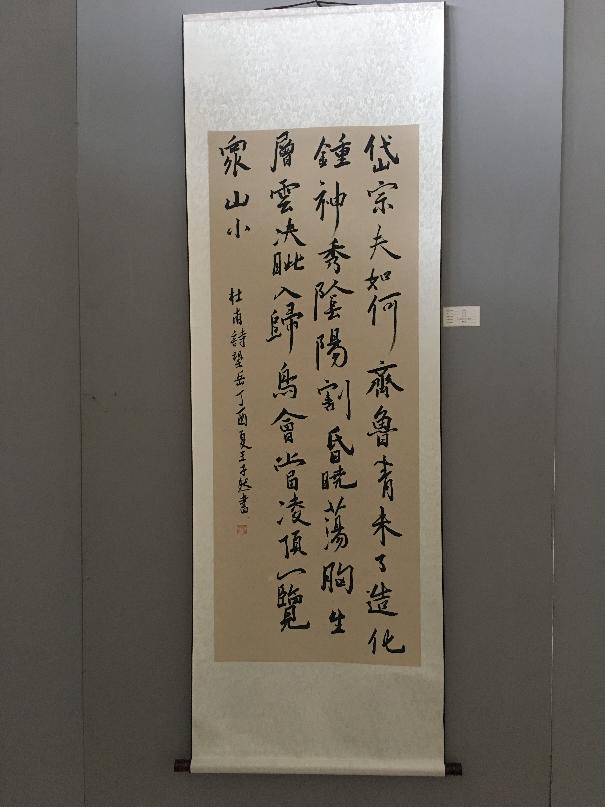 岱宗夫如何齊魯青未了造化
鍾神秀陰陽割昏曉蕩胸生
層雲决眦入歸鳥會當凌頂一覽
衆山小
杜甫詩望岳丁酉夏王子然書